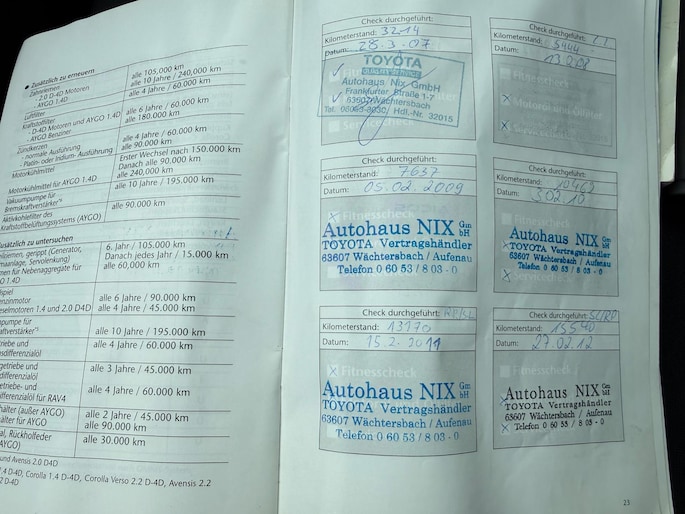 ● Zusätzlich zu erneuern
Zahnriemen
- 2.0 D-4D Motoren
alle 105.000 km
- AYGO 1.4D
alle 10 Jahre / 240.000 km
Luftfilter
alle 4 Jahre / 60.000 km
Kraftstoffilter
- D-4D Motoren und AYGO 1.4D
alle 6 Jahre / 60.000 km
- AYGO Benziner
alle 180.000 km
Zündkerzen
- normale Ausführung
alle 4 Jahre / 60.000 km
- Platin- oder Indium- Ausführung
alle 90.000 km
Motorkühlmittel
Erster Wechsel nach 150.000 km
Danach alle 90.000 km
Motorkühlmittel für AYGO 1.4D
alle 240,000 km
Vakuumpumpe für
alle 10 Jahre / 195.000 km
Bremskraftverstärker
Aktivkohlefilter des
alle 90.000 km
Kraftstoffbelüftungssystems (AYGO)
usätzlich zu untersuchen
gerippt (Generator,
6. Jahr / 105.000 km
maanlage, Servolenkung)
Danach jedes Jahr / 15.000 km
men für Nebenaggregate für
alle 60,000 km
GO 1.4D
spiel
enzinmotor
alle 6 Jahre / 90.000 km
eselmotoren 1.4 und 2.0 D4D
alle 4 Jahre / 45.000 km
pumpe für
alle 10 Jahre / 195.000 km
aftverstärker
riebe und
alle 4 Jahre / 60.000 km
sdifferenzialöl
getriebe und
alle 3 Jahre / 45.000 km
differenzialöl
etriebe- und
alle 4 Jahre / 60.000 km
differenzialöl für RAV4
hälter (außer AYGO)
alle 2 Jahre / 45.000 km
älter für AYGO
alle 90.000 km
al, Rückholfeder
alle 30.000 km
AYGO)
und Avensis 2.0 D4D
1.4 D-4D, Corolla 1.4 D-4D, Corolla Verso 2.2 D-4D, Avensis 2.2
2 D-4D
Check durchgeführt:
Kilometerstand: 3214
Datum: 28.3.07
TOYOTA
Autohaus Nix GmbH
Frankfurter Straße 1-7
63607 Wächtersbach
Tel. 06053-8030, Hdl.-Nr. 32015
Check durchgeführt:
Kilometerstand: 5444
Datum:
Fitnesscheck
Motoröl und Filter
Servicecheck
Check durchgeführt:
Kilometerstand: 7637
Datum: 05.02.2009
Fitnesscheck
Autohaus NIX GmbH
TOYOTA Vertragshändler
63607 Wächtersbach / Aufenau
Telefon 0 60 53 / 8 03 - 0
Check durchgeführt:
Kilometerstand: 10462
Datum: 3.02.10
Fitnesscheck
Autohaus NIX GmbH
TOYOTA Vertragshändler
63607 Wächtersbach / Aufenau
Telefon 0 60 53 / 8 03 - 0
Servicecheck
Check durchgeführt:
Kilometerstand: 13170
Datum: 15.2.2011
Fitnesscheck
Autohaus NIX GmbH
TOYOTA Vertragshändler
63607 Wächtersbach / Aufenau
Telefon 0 60 53 / 8 03 - 0
Check durchgeführt:
Kilometerstand: 15540
Datum: 27.02.12
Fitnesscheck
Autohaus NIX GmbH
TOYOTA Vertragshändler
63607 Wächtersbach / Aufenau
Telefon 0 60 53 / 8 03 - 0
23